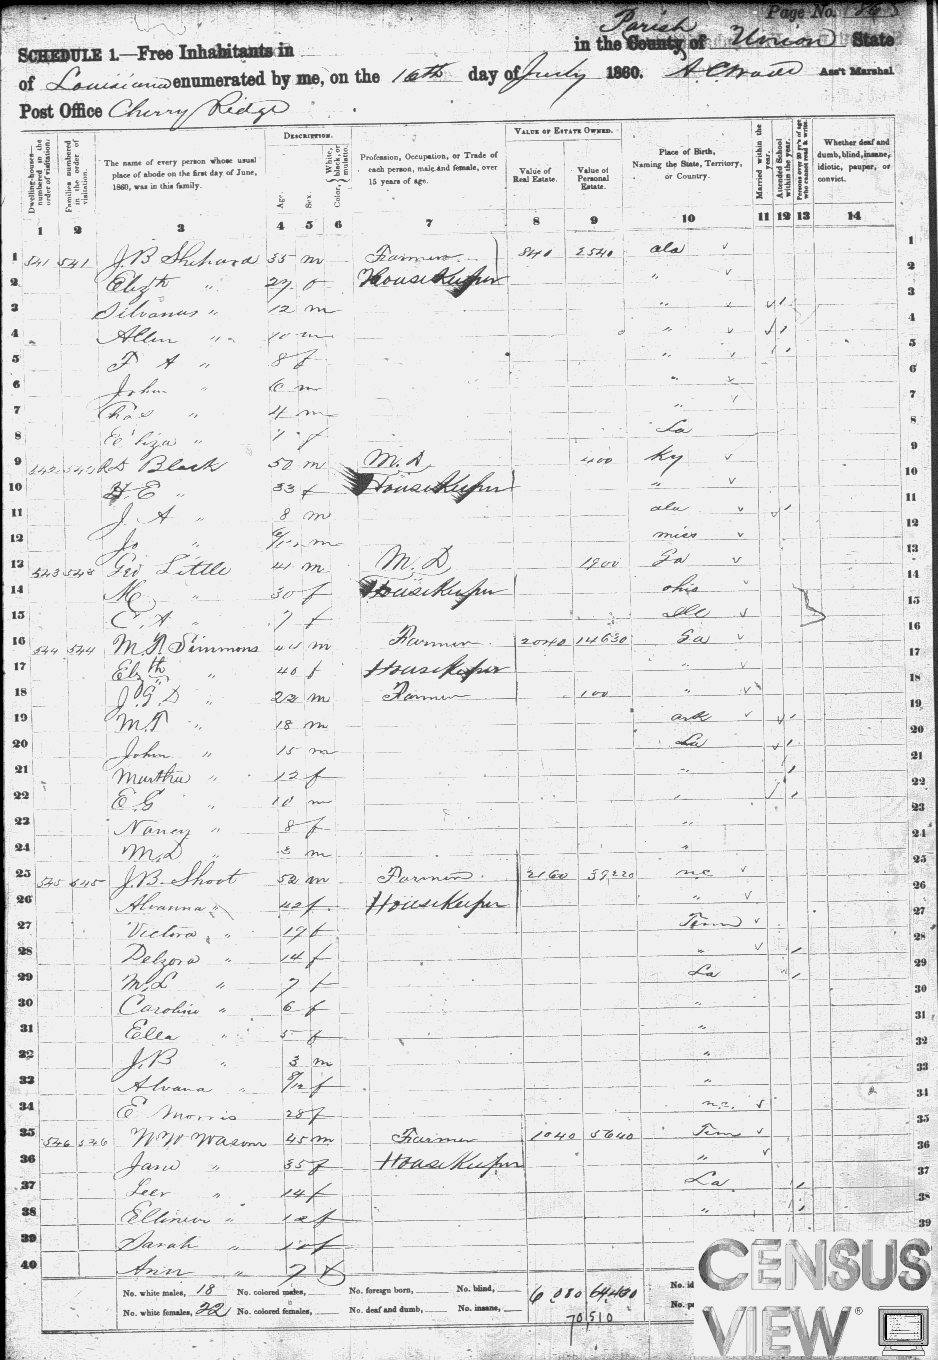 Page No. 86
SCHEDULE 1.—Free Inhabitants in in the County Parish of Union State
of Louisiana enumerated by me, on the 16th day of July 1860. Ass't Marshal
Post Office Cherry Ridge
DESCRIPTION. VALUE OF ESTATE OWNED.
Dwelling-houses numbered in the order of visitation.
Families numbered in the order of visitation.
The name of every person whose usual place of abode on the first day of June, 1860, was in this family.
Age.
Sex
Color, White, black, or mulatto.
Profession, Occupation, or Trade of each person, male and female, over 15 years of age.
Value of Real Estate.
Value of Personal Estate.
Place of Birth, Naming the State, Territory, or Country.
Married within the year.
Attended School within the year.
Persons over 20 y'rs of age who cannot read & write.
Whether deaf and dumb, blind, insane, idiotic, pauper, or convict.
1 2 3 4 5 6 7 8 9 10 11 12 13 14
1 541 541 J.B Shehard 35 m Farmer 840 2540 ala
2 Elizth " 29 f HouseKeeper "
3 Silvanus " 12 m "
4 Allen " 10 m "
5 F A " 8 f "
6 John " 6 m "
7 Chas " 4 m "
8 " 1 f La
9 542 542 Black 50 m M.D 400 Ky
10 H E " 33 f HouseKeeper "
11 J. A " 8 m ala
12 Jo " m miss
13 543 543 Geo Little 41 m M.D 1900 Ga
14 M " 30 f HouseKeeper ohio
15 E. A " 7 f Ill
16 544 544 M.T. Simmons 44 m Farmer 2040 14630 Ga
17 Elzth " 40 f HouseKeeper "
18 J.G.D " 22 m Farmer 100 "
19 M.T " 18 m ark
20 John " 15 m La
21 Martha " 12 f "
22 E G " 10 m "
23 Nancy " 8 f "
24 M.D " 3 m "
25 545 545 J.B. Shoot 52 m Farmer 2160 39220 n.c
26 Alvanna " 42 f HouseKeeper "
27 Victora " 19 f Tenn
28 Delzora " 14 f "
29 M.L " 7 f La
30 Caroline " 6 f "
31 Ella " 5 f "
32 J.B " 3 m "
33 Alvana " 8/12 f "
34 E Morris 28 f n.c.
35 546 546 Wasom 45 m Farmer 1040 5640 Tenn
36 Jane " 35 f HouseKeeper "
37 " 14 f La
38 Ellinor " 12 f "
39 Sarah " 10 f
40 Ann " 7 f
No. white males, 18 No. colored males, No. foreign born, No. blind, 6,080 64,430 No. id
No. white females, 22 No. colored females, No. deaf and dumb, No. insane, No. p
70,510
CENSUS
VIEW®